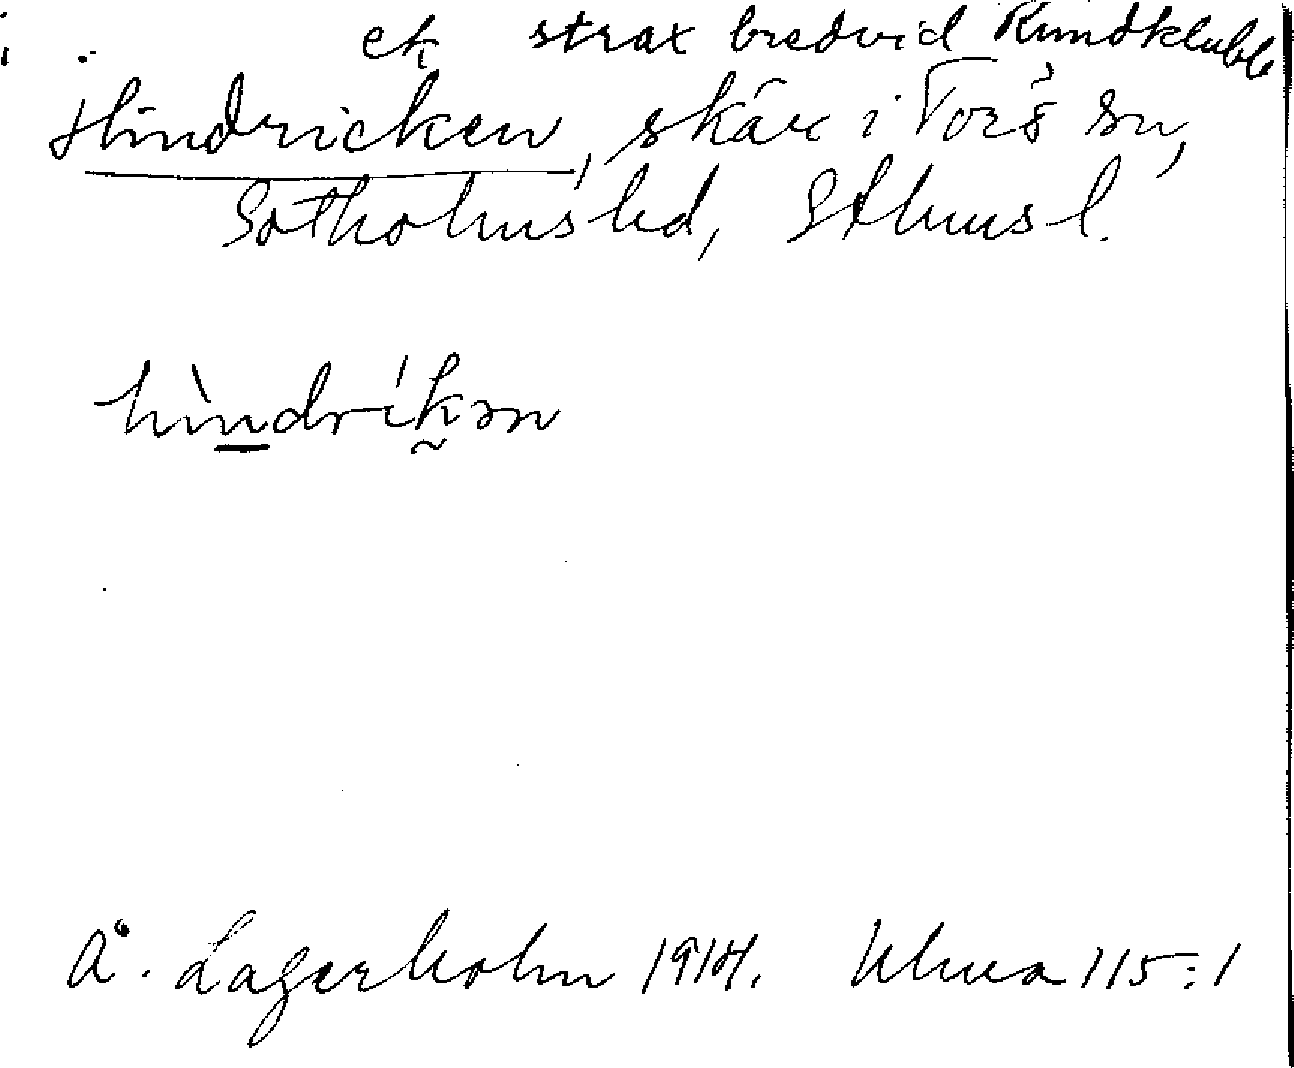 ek strax bredvid Rundklubb
Hindricken, skär i Torö sn,
Sotholms hd, Sthms l.
hìndríkən
Å. Lagerholm 1914. Ulma 115:1